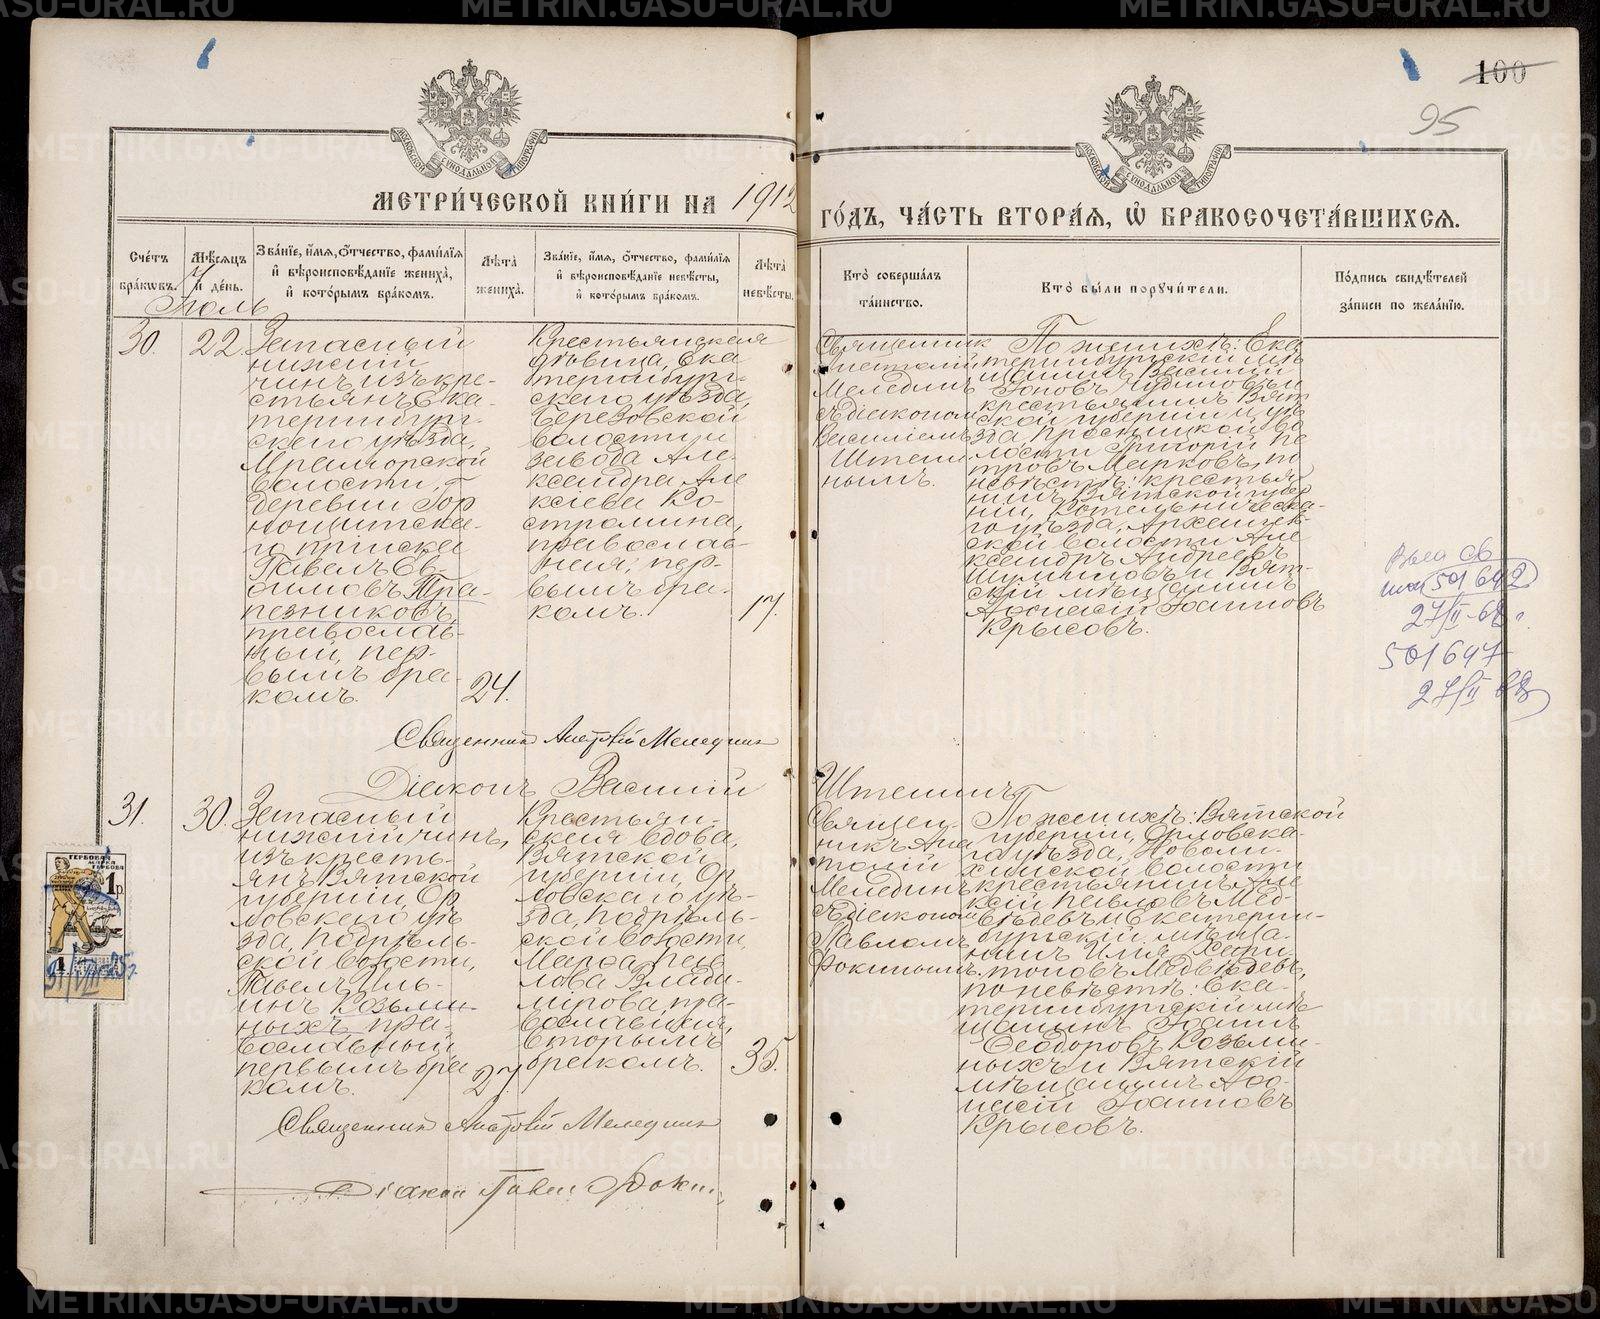 100
95
МОСКОВСКОЙ СѴНОДАЛЬНОЙ ТИПОГРАФІИ
МОСКОВСКОЙ СѴНОДАЛЬНОЙ ТИПОГРАФІИ
МЕТРИ́ЧЕСКОЙ КНИ́ГИ НА 1912
ГО́ДЪ, ЧА́СТЬ ВТОРА́Ѧ, Ѽ БРАКОСОЧЕТА́ВШИХСѦ.
Сче́тъ бра́кѡвъ.
Мѣ́сѧцъ и де́нь.
Зва́нїе, и́мѧ, ѻ́тчество, фами́лїѧ и́ вѣроисповѣ́данїе жениха̀, и́ кото́рымъ бра́комъ.
Лѣ́та жениха̀.
Зва́нїе, и́мѧ, ѻ́тчество, фами́лїѧ и́ вѣроисповѣ́данїе невѣ́сты, и́ кото́рымъ бра́комъ.
Лѣ́та невѣ́сты.
Кто̀ соверша́лъ та́инство.
Кто̀ бы́ли порꙋчи́тели.
По́дпись свидѣ́телей за́писи по жела́нїю.
Іюль
30.
22
Запасный
нижній
чинъ изъ кре-
стьянъ Ека-
теринбург-
скаго уѣзда,
Мраморской
волости,
деревни Гор
нощитска-
го пріиска
Павелъ Ев-
фимовъ Тра-
пезниковъ,
православ-
ный, пер-
вымъ бра-
комъ.
24.
Крестьянская
дѣвица, Ека
теринбург-
скаго уѣзда,
Березовской
волости и
завода Але-
ксандра Але
ксіева Ко-
стромина,
православ-
ная, пер-
вымъ бра-
комъ.
17.
Священник
Анатолій
Меледин
съ діакономъ
Василіемъ
Штени-
нымъ.
По женихѣ: Ека
теринбургскій мѣ
щанинъ Василій
Іоновъ Чудиновъ и
крестьянинъ Вят
ской губерніи и уѣ
зда, Просницкой во
лости Григорій Пе
тровъ Марковъ, по
невѣстѣ: крестья
нинъ Вятской губер
ніи, Котельническа-
го уѣзда, Архангель
ской волости Але
ксандръ Андреевъ
Шумиловъ и Вят-
скій мѣщанинъ
Аѳонасій Іоанновъ
Крысовъ.
501642
27/II-68г.
501647
27/II 68
Священникъ Анатолій Меледин
Діаконъ Василій
Штенинъ
31.
30.
Запасный
нижній чинъ,
изъ кресть-
янъ Вятской
губерніи, Ор
ловскаго уѣ
зда, Подрѣль-
ской волости,
Павелъ Иль-
инъ Козьми-
ныхъ, пра-
вославный
первымъ бра
комъ.
27
Крестьян-
ская вдова,
Вятской
губерніи, Ор
ловскаго уѣ-
зда, Подрѣль-
ской волости,
Марѳа Пав
лова Влади-
мірова, пра-
вославная,
вторымъ
бракомъ.
35.
Священ-
никъ Ана
толій
Мелединъ
съ діакономъ
Павломъ
Фокинымъ.
По женихѣ: Вятской
губерніи, Орловска-
го уѣзда,
волости
крестьянинъ Але
ксѣй Павловъ Мед-
вѣдевъ и Екатерин-
бургскій мѣща-
нинъ Илія Хари-
тоновъ Медвѣдевъ,
по невѣстѣ: Ека-
теринбургскій мѣ
щанинъ Іоаннъ
Ѳеодоровъ Козьми-
ныхъ и Вятскій
мѣщанинъ Аѳо-
насій Іоанновъ
Крысовъ.
ГЕРБОВАЯ МАРКА
1 р
Священникъ Анатолій Меледин
Діакон Павел Фокин
METRIKI.GASO-URAL.RU